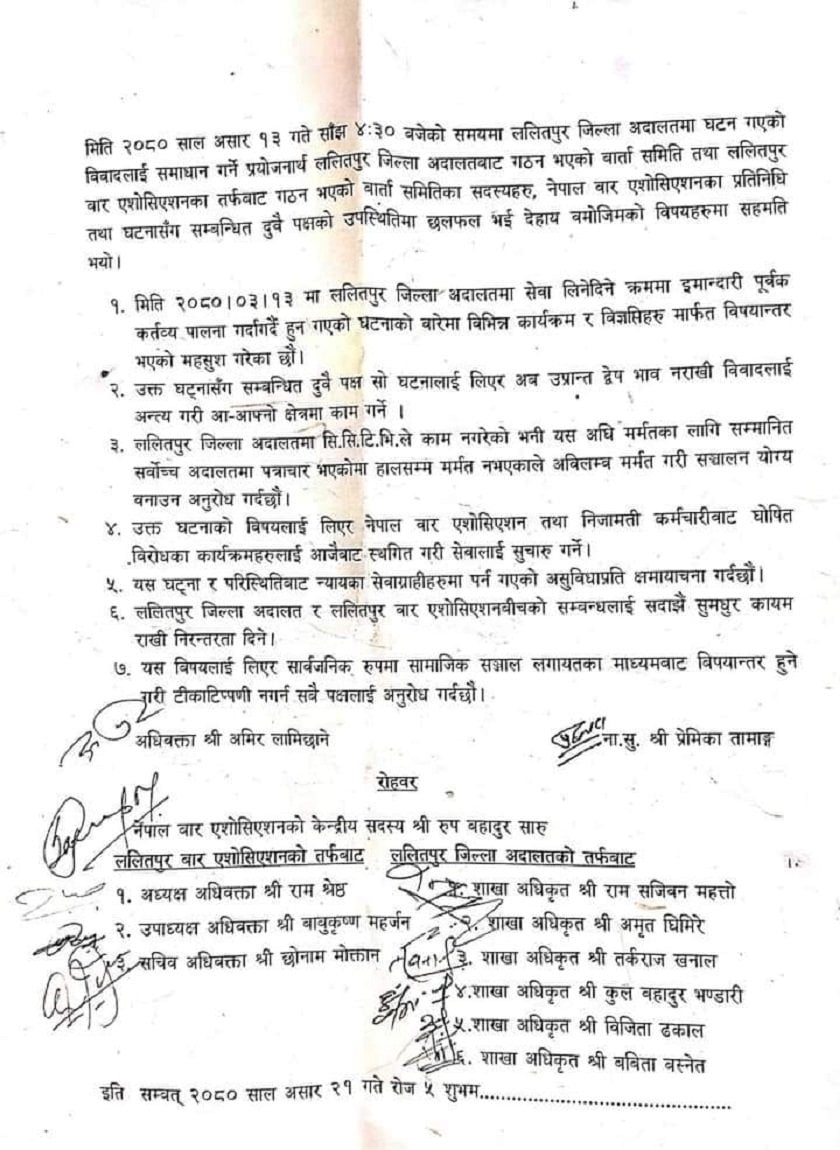 मिति २०८० साल असार १३ गते साँझ ४:३० बजेको समयमा ललितपुर जिल्ला अदालतमा घटन गएको
विवादलाई समाधान गर्ने प्रयोजनार्थ ललितपुर जिल्ला अदालतबाट गठन भएको वार्ता समिति तथा ललितपुर
वार एशोसिएशनका तर्फबाट गठन भएको वार्ता समितिका सदस्यहरु, नेपाल वार एशोसिएशनका प्रतिनिधि
तथा घटनासँग सम्बन्धित दुवै पक्षको उपस्थितिमा छलफल भई देहाय वमोजिमको विषयहरुमा सहमति
भयो।
१. मिति २०८०।०३।१३ मा ललितपुर जिल्ला अदालतमा सेवा लिनेदिने क्रममा इमान्दारी पूर्वक
कर्तव्य पालना गर्दागर्दै हुन गएको घटनाको बारेमा विभिन्न कार्यक्रम र विज्ञप्तिहरु मार्फत विषयान्तर
भएको महसुश गरेका छौं।
२. उक्त घट्नासँग सम्बन्धित दुवै पक्ष सो घटनालाई लिएर अब उप्रान्त द्वेष भाव नराखी विवादलाई
अन्त्य गरी आ-आफ्नो क्षेत्रमा काम गर्ने ।
३. ललितपुर जिल्ला अदालतमा सि.सि.टि.भि.ले काम नगरेको भनी यस अघि मर्मतका लागि सम्मानित
सर्वोच्च अदालतमा पत्राचार भएकोमा हालसम्म मर्मत नभएकाले अविलम्ब मर्मत गरी सञ्चालन योग्य
वनाउन अनुरोध गर्दछौं।
४. उक्त घटनाको विषयलाई लिएर नेपाल वार एशोसिएशन तथा निजामती कर्मचारीवाट घोषित
विरोधका कार्यक्रमहरुलाई आजैबाट स्थगित गरी सेवालाई सुचारु गर्ने।
५. यस घट्ना र परिस्थितिबाट न्यायका सेवाग्राहीहरुमा पर्न गएको असुविधाप्रति क्षमायाचना गर्दछौं।
६. ललितपुर जिल्ला अदालत र ललितपुर वार एशोसिएशनबीचको सम्बन्धलाई सदाझैं सुमधुर कायम
राखी निरन्तरता दिने।
७. यस विषयलाई लिएर सार्वजनिक रुपमा सामाजिक सञ्जाल लगायतका माध्यमबाट विषयान्तर हुने
गरी टीकाटिप्पणी नगर्न सबै पक्षलाई अनुरोध गर्दछौं।
अधिवक्ता श्री अमिर लामिछाने ना.सु. श्री प्रेमिका तामाङ्ग
रोहवर
नेपाल वार एशोसिएशनको केन्द्रीय सदस्य श्री रुप बहादुर सारु
ललितपुर बार एशोसिएशनको तर्फबाट ललितपुर जिल्ला अदालतको तर्फबाट
१. अध्यक्ष अधिवक्ता श्री राम श्रेष्ठ १. शाखा अधिकृत श्री राम सजिबन महत्तो
२. उपाध्यक्ष अधिवक्ता श्री बाबुकृष्ण महर्जन २. शाखा अधिकृत श्री अमृत घिमिरे
३. सचिव अधिवक्ता श्री छोनाम मोक्तान ३. शाखा अधिकृत श्री तर्कराज खनाल
४.शाखा अधिकृत श्री कुल बहादुर भण्डारी
५.शाखा अधिकृत श्री विजिता ढकाल
६. शाखा अधिकृत श्री बबिता बस्नेत
इति सम्वत् २०८० साल असार २१ गते रोज ५ शुभम्.......................................